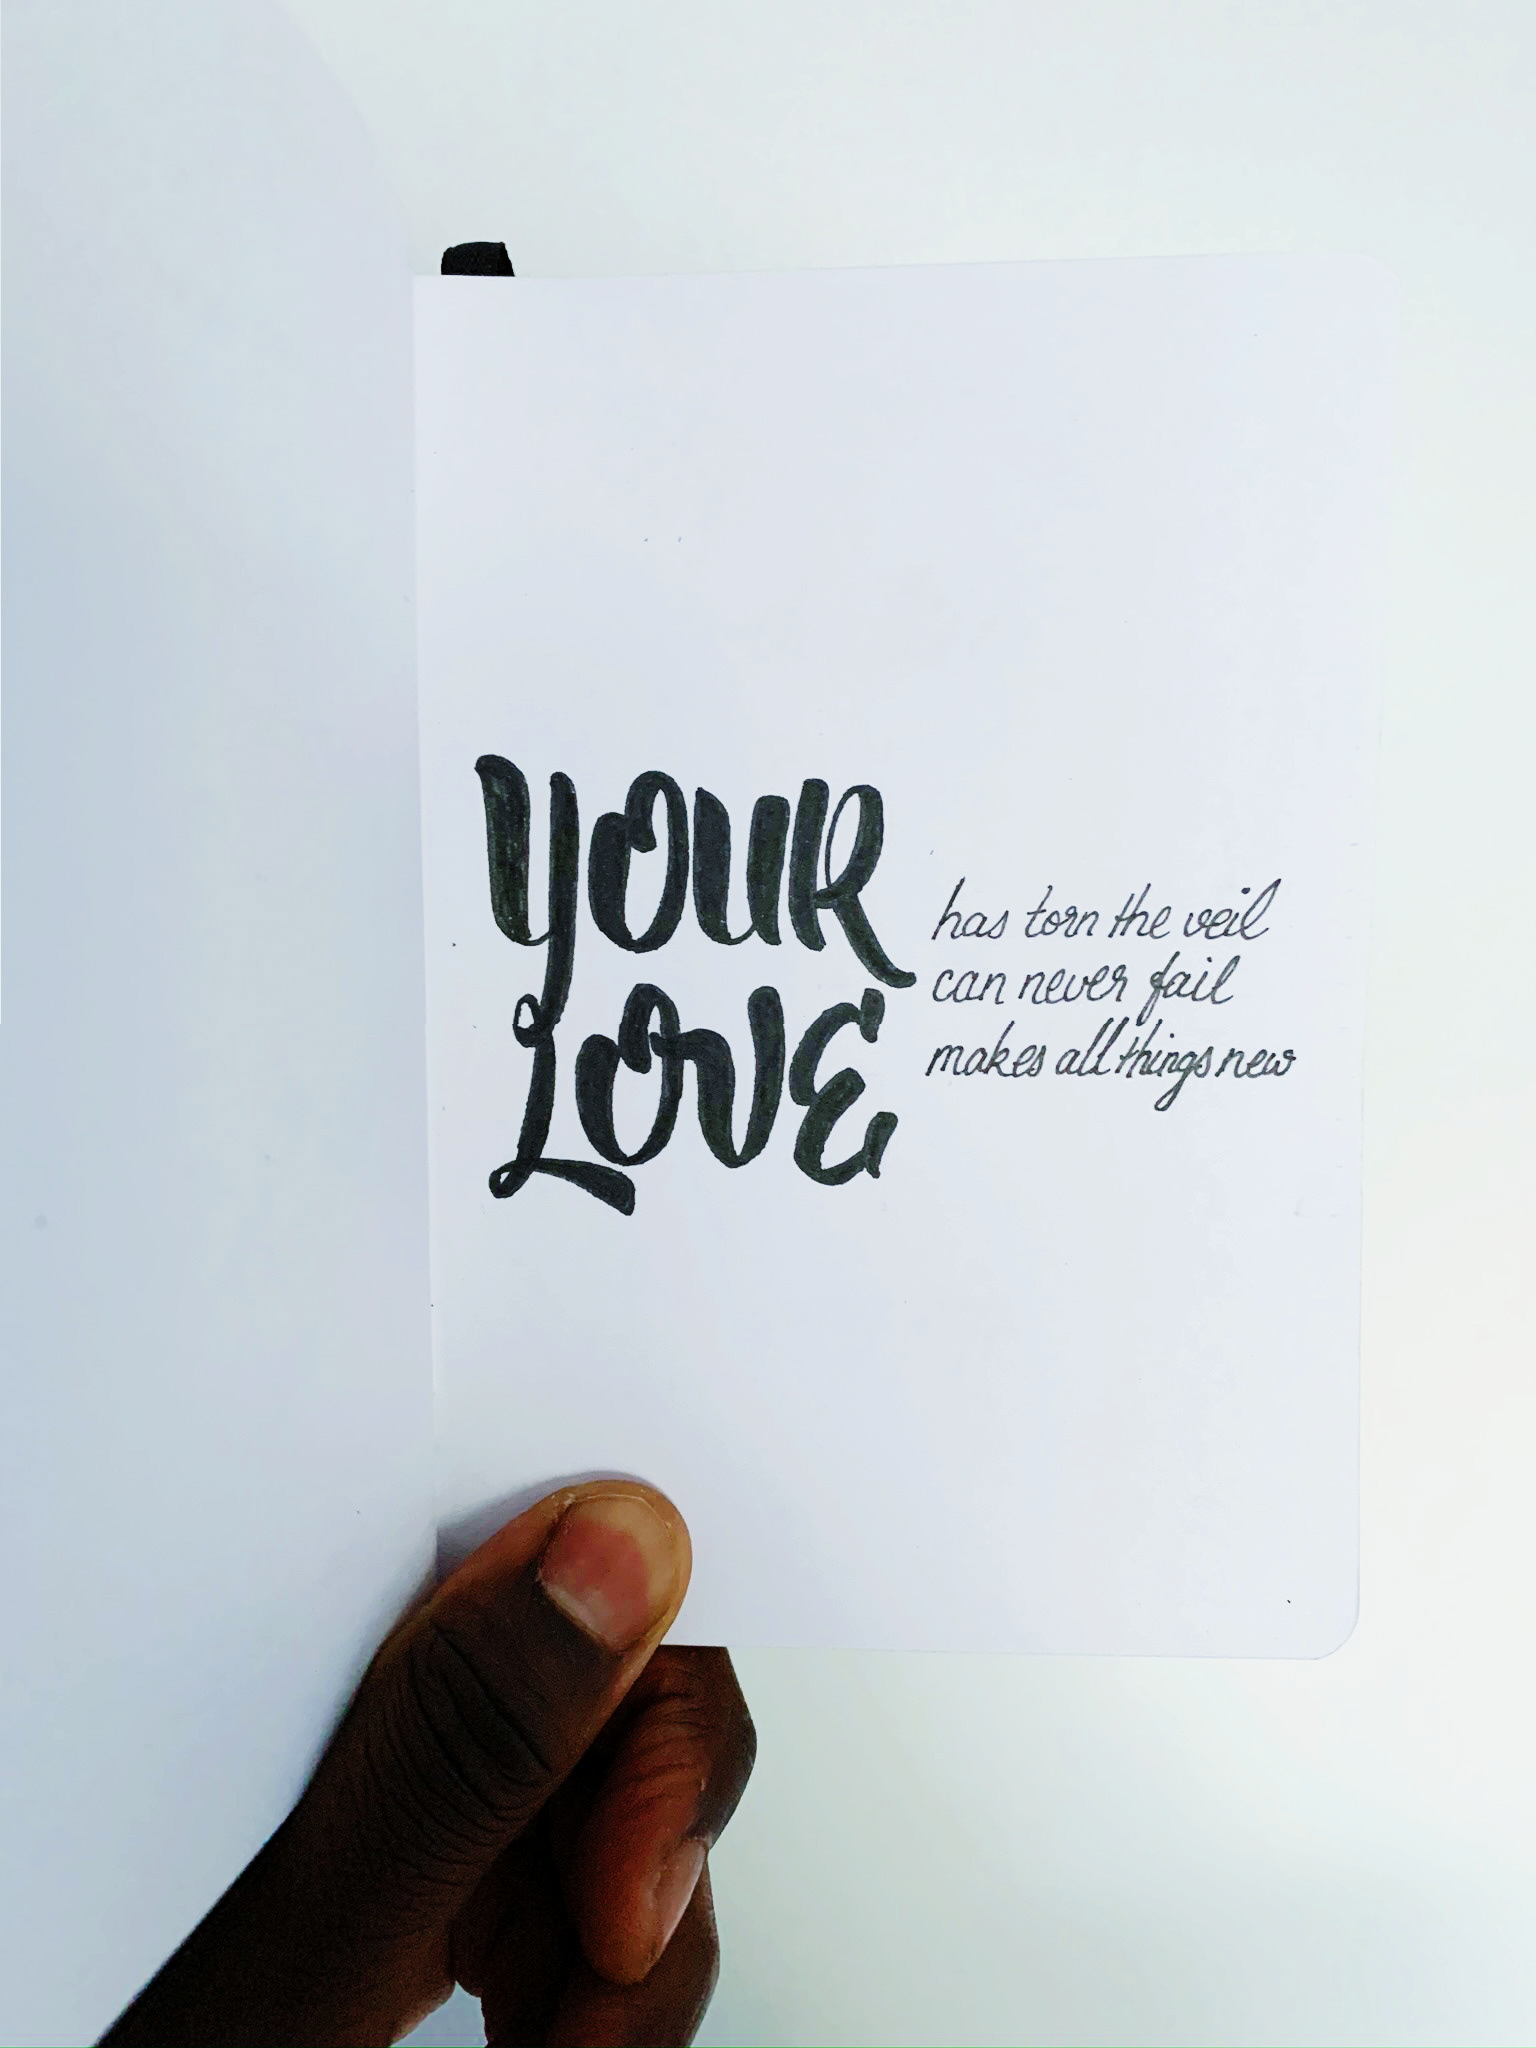 YOUR
LOVE
has torn the veil
can never fail
makes all things new